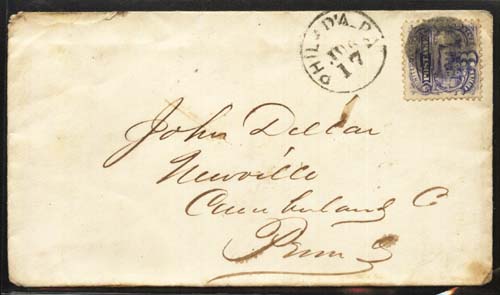 PHILAD'A. PA
17
POSTAGE
John Dellar
Newville
Cumberland C
Penn